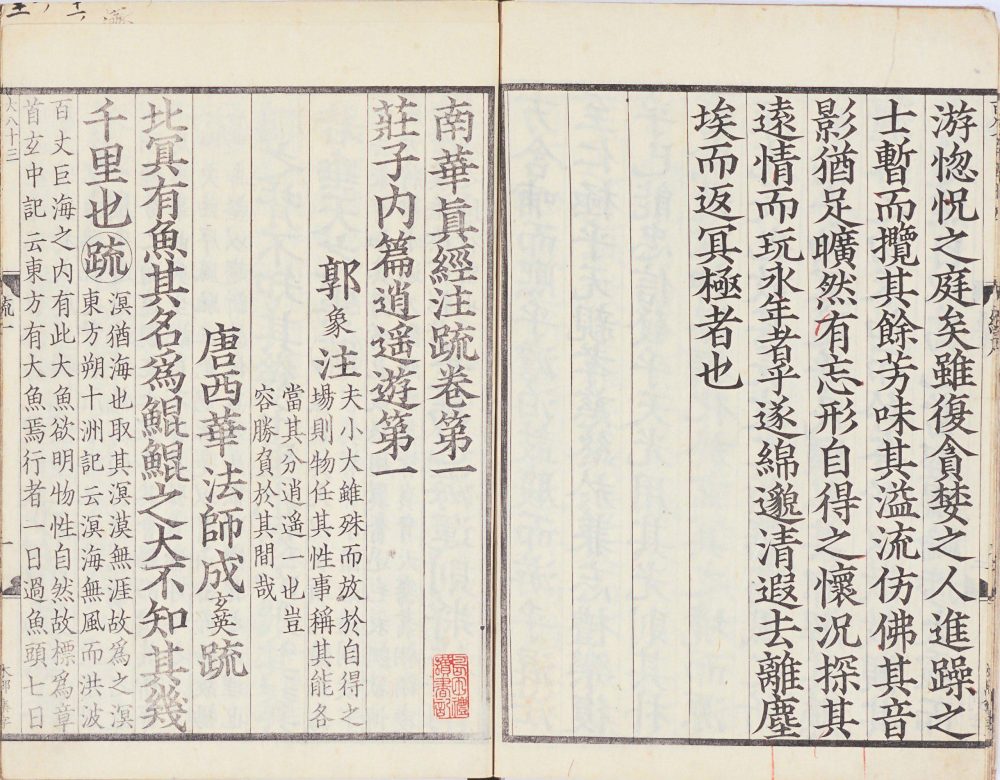 游惚怳之庭矣雖復貪婪之人進躁之
士暫而攬其餘芳味其溢流仿佛其音
影猶足曠然有忘形自得之懷況探其
遠情而玩永年者乎遂綿邈清遐去離塵
埃而返冥極者也
南華真經注疏卷第一
莊子内篇逍遥遊第一
郭象注
夫小大雖殊而放於自得之
場則物任其性事稱其能各
當其分逍遥一也豈
容勝負於其間哉
唐西華法師成玄英疏
北冥有魚其名為鯤鯤之大不知其幾
千里也疏
溟猶海也取其溟漠無涯故爲之溟
東方朔十洲記云溟海無風而洪波
百丈巨海之内有此大魚欲明物性自然故標爲章
首玄中記云東方有大魚焉行者一日過魚頭七日
大八十三
疏一
一